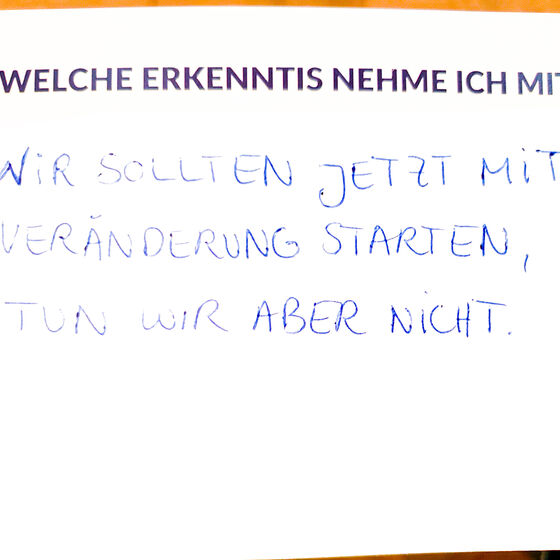 WELCHE ERKENNTIS NEHME ICH MIT
WIR SOLLTEN JETZT MIT
VERÄNDERUNG STARTEN,
TUN WIR ABER NICHT.